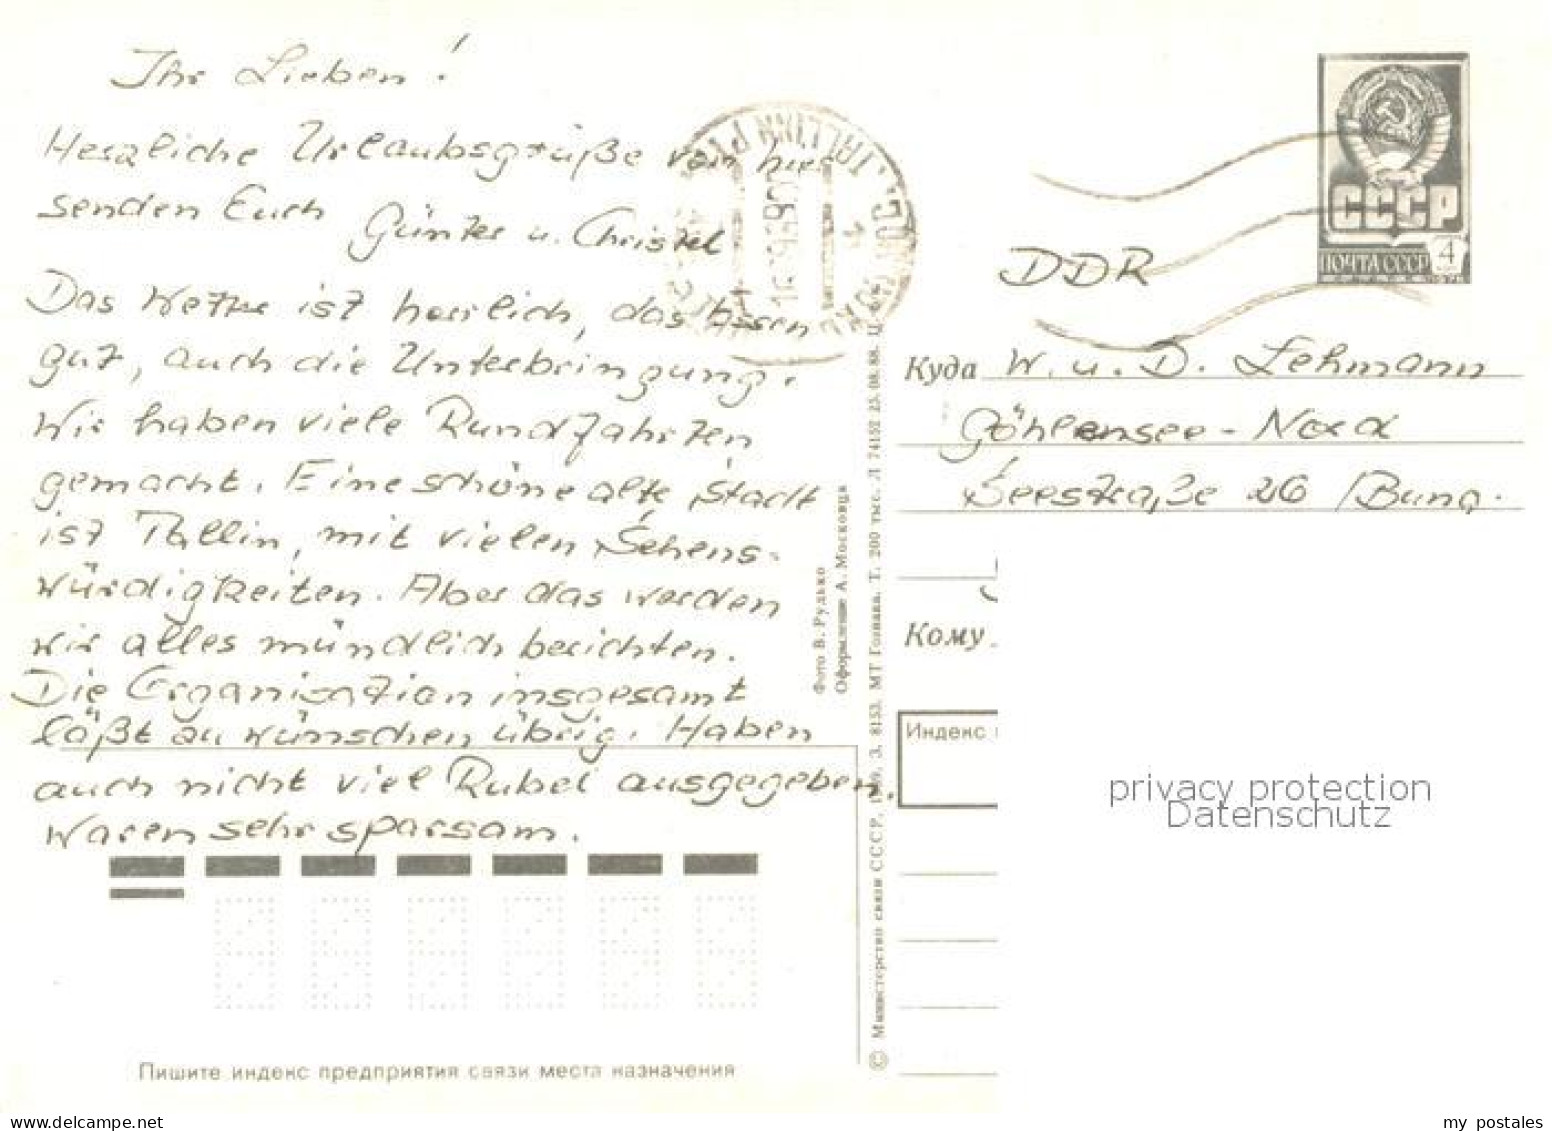 Ihr Lieben!
Herzliche Urlaubsgrüße von hier
senden Euch
Günter u. Christel
Das Wetter ist herrlich, das Essen
gut, auch die Unterbringung.
Wir haben viele Rundfahrten
gemacht. Eine schöne alte Stadt
ist Tallin, mit vielen Sehens-
würdigkeiten. Aber das werden
wir alles mündlich berichten.
Die Organisation insgesamt
läßt zu wünschen übrig. Haben
auch nicht viel Rubel ausgegeben.
Waren sehr sparsam.
Пишите индекс предприятия связи места назначения
Фото В. Рудько
Оформление А. Московца
© Министерство связи СССР, 1989. З. 8153. МТ Гознака. Т. 200 тыс. Л 74152 25.08.88. Ц.
TALLINN
СССР
ПОЧТА СССР 4
DDR
Куда W. u. D. Lehmann
Göhlensee-Nord
Seestraße 26 / Bung.
Кому
Индекс
privacy protection
Datenschutz
my postales